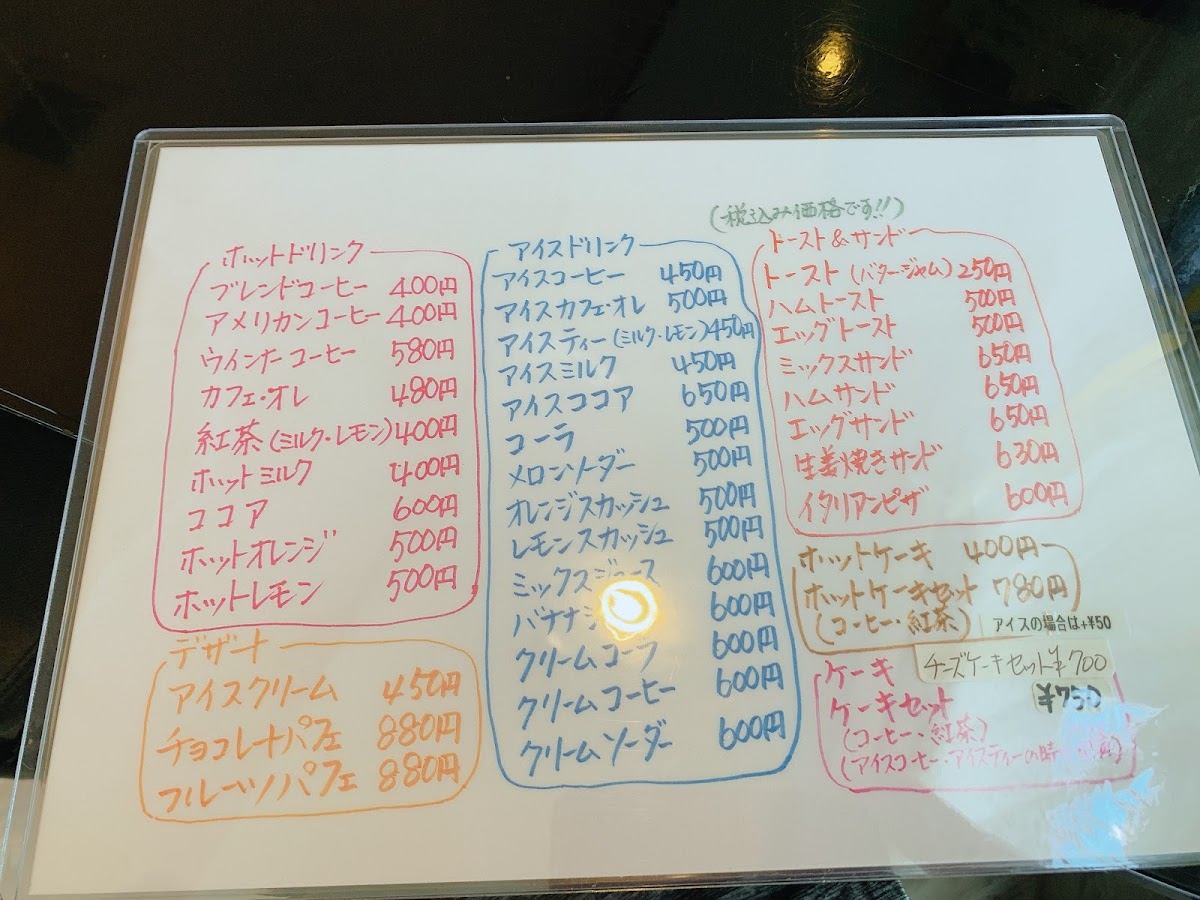 (税込み価格です!!)
ホットドリンク
ブレンドコーヒー 400円
アメリカンコーヒー 400円
ウインナーコーヒー 580円
カフェ・オレ 480円
紅茶(ミルク・レモン)400円
ホットミルク 400円
ココア 600円
ホットオレンジ 500円
ホットレモン 500円
デザート
アイスクリーム 450円
チョコレートパフェ 880円
フルーツパフェ 880円
アイスドリンク
アイスコーヒー 450円
アイスカフェ・オレ 500円
アイスティー(ミルク・レモン)450円
アイスミルク 450円
アイスココア 650円
コーラ 500円
メロンソーダー 500円
オレンジスカッシュ 500円
レモンスカッシュ 500円
ミックスジュース 600円
バナナ 600円
クリームコーラ 600円
クリームコーヒー 600円
クリームソーダー 600円
トースト&サンド
トースト(バタージャム)250円
ハムトースト 500円
エッグトースト 500円
ミックスサンド 650円
ハムサンド 650円
エッグサンド 650円
生姜焼きサンド 630円
イタリアンピザ 600円
ホットケーキ 400円
ホットケーキセット 780円
(コーヒー・紅茶) アイスの場合は+¥50
チーズケーキセット¥700
ケーキ
ケーキセット ¥750
(コーヒー・紅茶)
(アイスコーヒー・アイスティーの時